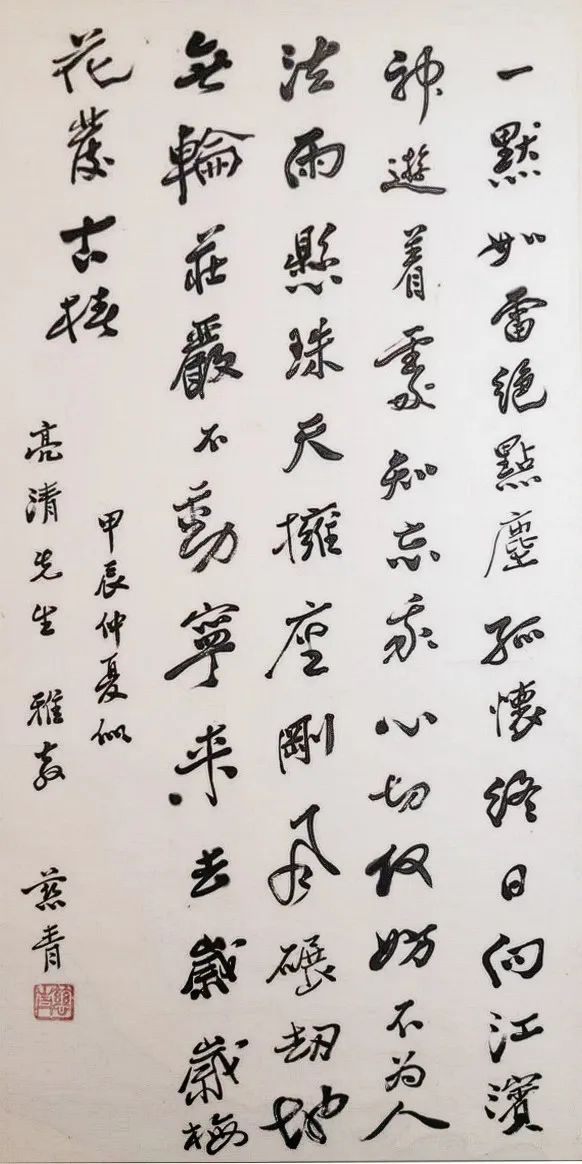 一默如雷絕點塵孤懷終日向江濱
神遊着處知忘我心切何妨不為人
法雨懸珠天擁座剛風碾劫地
無輪莊嚴不動寧來去歲歲梅
花發古椿
甲辰仲夏似
亮清先生 雅教
慈青